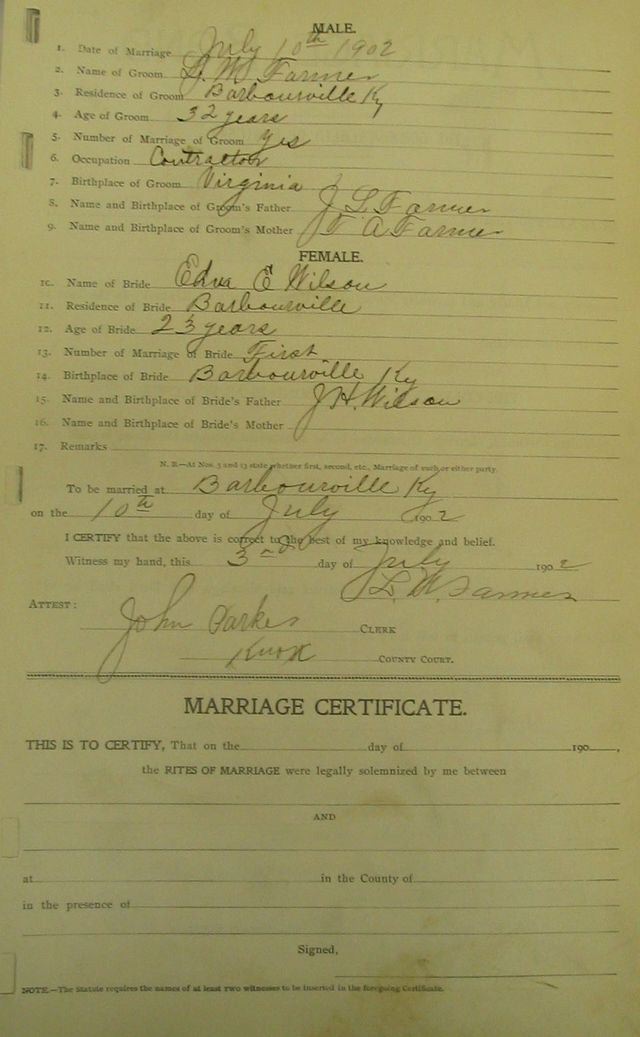 MALE.
1. Date of Marriage July 10th 1902
2. Name of Groom L. W. Farmer
3. Residence of Groom Barbourville Ky
4. Age of Groom 32 years
5. Number of Marriage of Groom Yes
6. Occupation Contractor
7. Birthplace of Groom Virginia
8. Name and Birthplace of Groom's Father J L Farmer
9. Name and Birthplace of Groom's Mother T A Farmer
FEMALE.
10. Name of Bride Edna E Wilson
11. Residence of Bride Barbourville
12. Age of Bride 23 years
13. Number of Marriage of Bride First
14. Birthplace of Bride Barbourville Ky
15. Name and Birthplace of Bride's Father J. H. Wilson
16. Name and Birthplace of Bride's Mother
17. Remarks
N. B.—At Nos. 5 and 13 state whether first, second, etc., Marriage of such or either party.
To be married at Barbourville Ky
on the 10th day of July 1902
I CERTIFY that the above is correct to the best of my knowledge and belief.
Witness my hand, this 3rd day of July 1902
L. W. Farmer
ATTEST:
John Parker CLERK
Knox COUNTY COURT.
MARRIAGE CERTIFICATE.
THIS IS TO CERTIFY, That on the day of 190 ,
the RITES OF MARRIAGE were legally solemnized by me between
AND
at in the County of
in the presence of
Signed,
NOTE.—The Statute requires the names of at least two witnesses to be inserted in the foregoing Certificate.